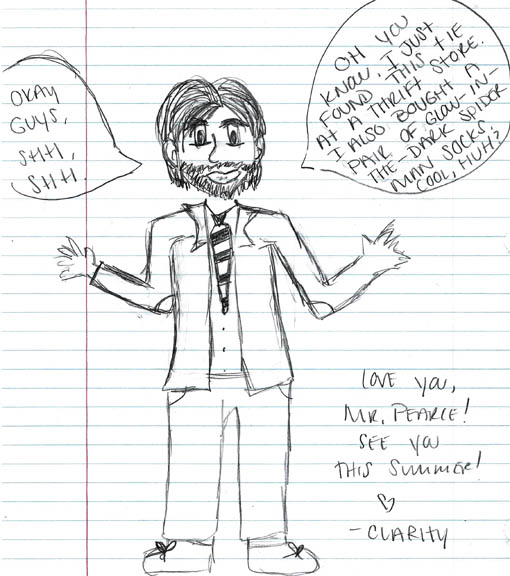 OKAY
GUYS,
SHH,
SHH.
OH YOU
KNOW. I JUST
FOUND THIS TIE
AT A THRIFT STORE.
I ALSO BOUGHT A
PAIR OF GLOW-IN-
THE-DARK SPIDER
MAN SOCKS.
COOL, HUH?
LOVE YOU,
MR. PEARCE!
SEE YOU
THIS SUMMER!
-CLARITY